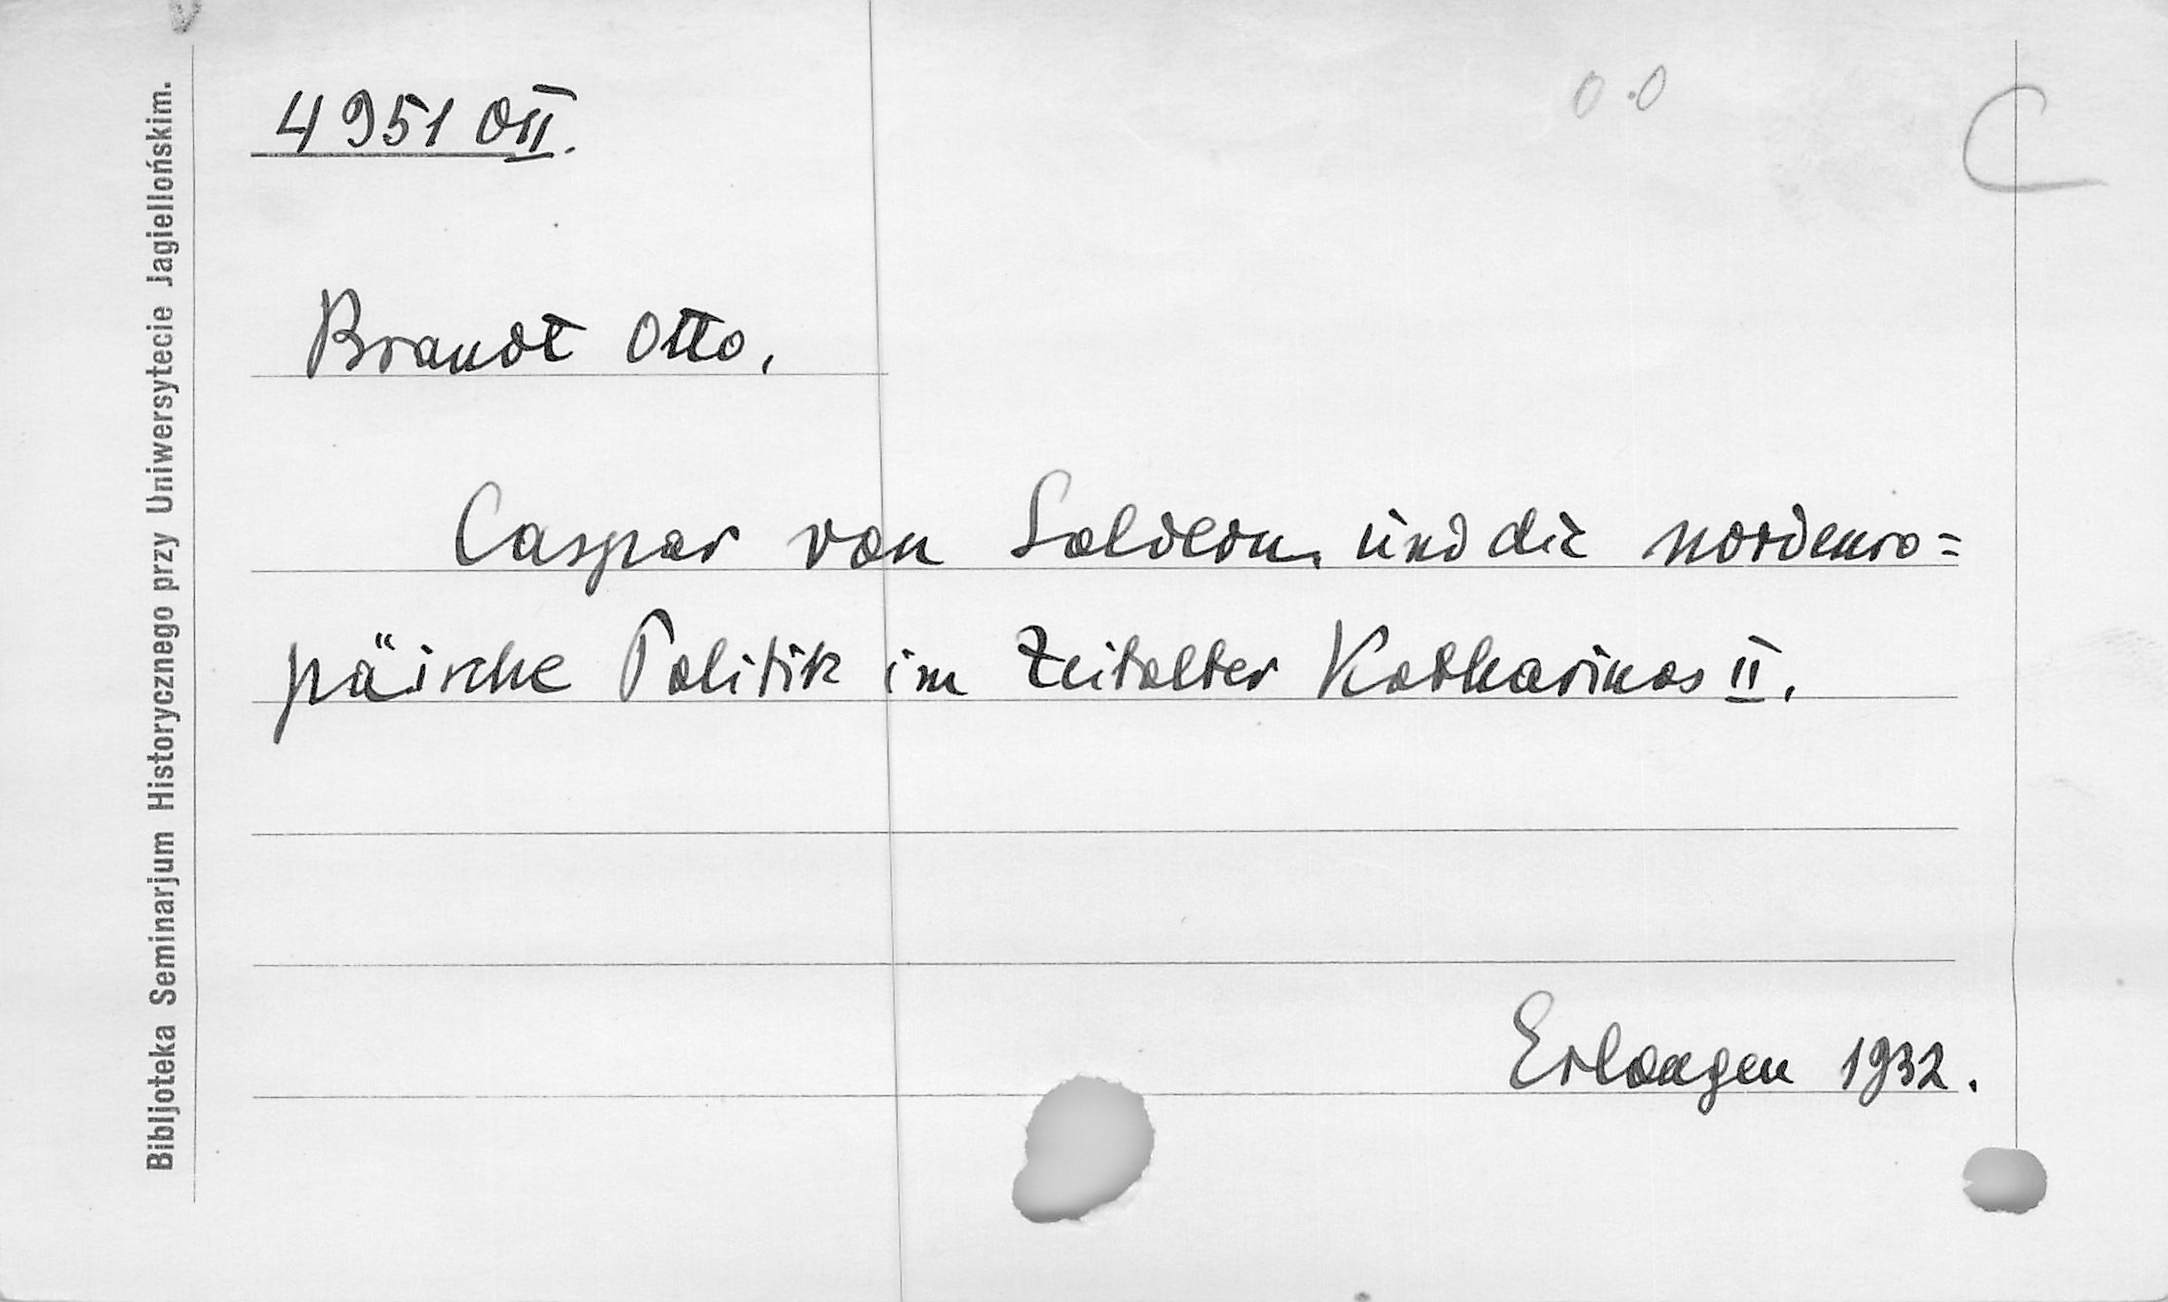 4951 OII.
0.0
C
Brandt Otto.
Caspar von Saldern und die nordeuro=
päische Politik im Zeitalter Katharinas II.
Erlangen 1932.
Bibljoteka Seminarjum Historycznego przy Uniwersytecie Jagiellońskim.